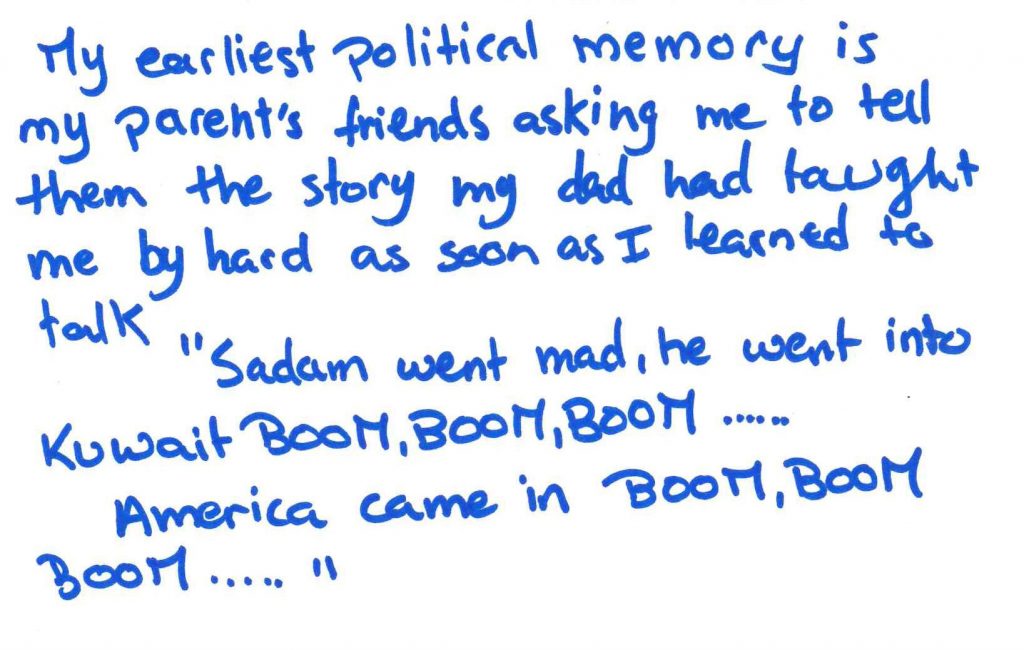 My earliest political memory is
my parent's friends asking me to tell
them the story my dad had taught
me by hard as soon as I learned to
talk
"Sadam went mad, he went into
Kuwait BOOM, BOOM, BOOM ......
America came in BOOM, BOOM
BOOM ..... "